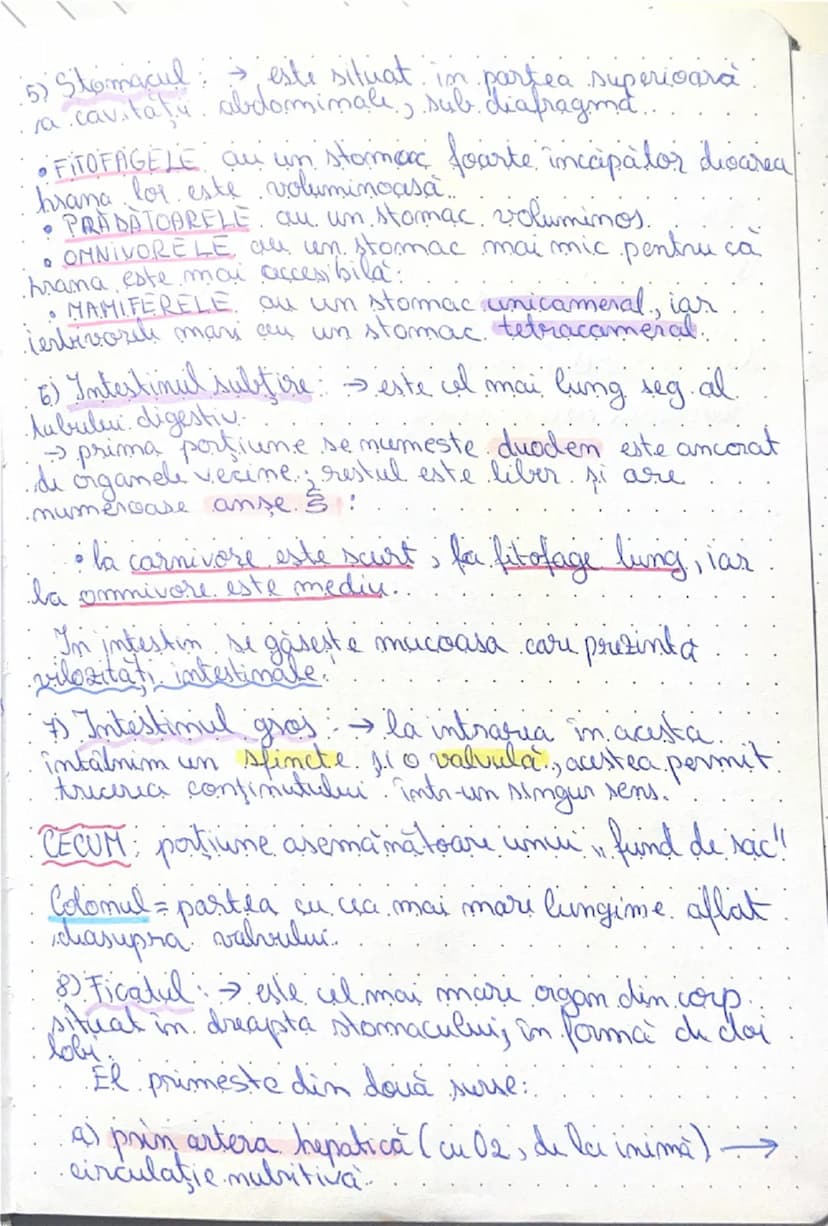 5) Stomacul : → este situat in partea superioară
a cavității abdominale, sub diafragmă.
• FITOFAGELE au un stomac foarte încăpător dioarea
hrana lor este voluminoasă.
• PRĂDĂTOARELE au un stomac voluminos.
• OMNIVORELE au un stomac mai mic pentru că
hrana este mai accesibilă.
• MAMIFERELE au un stomac unicameral, iar
ierbivorele mari au un stomac tetracameral.
6) Intestinul subțire : → este cel mai lung seg al
tubului digestiv.
→ prima porțiune se numeste duoden este ancorat
de organele vecine ; restul este liber și are
numeroase anse !
• la carnivore este scurt, la fitofage lung, iar
la omnivore este mediu.
In intestin se găsește mucoasa care prezinta
vilozități intestinale.
7) Intestinul gros : → la intrarea în acesta
întâlnim un sfincte și o valvulă, acestea permit
trecerea conținutului într-un singur sens.
CECUM : porțiune asemănătoare unui „fund de sac"
Colonul = partea cu cea mai mare lungime aflat
deasupra valvului.
8) Ficatul : → este cel mai mare organ din corp
situat în dreapta stomacului, în formă de doi
lobi.
El primeste din două surse :
a) prin artera hepatică (cu O2, de la inimă) →
circulație nutritivă.